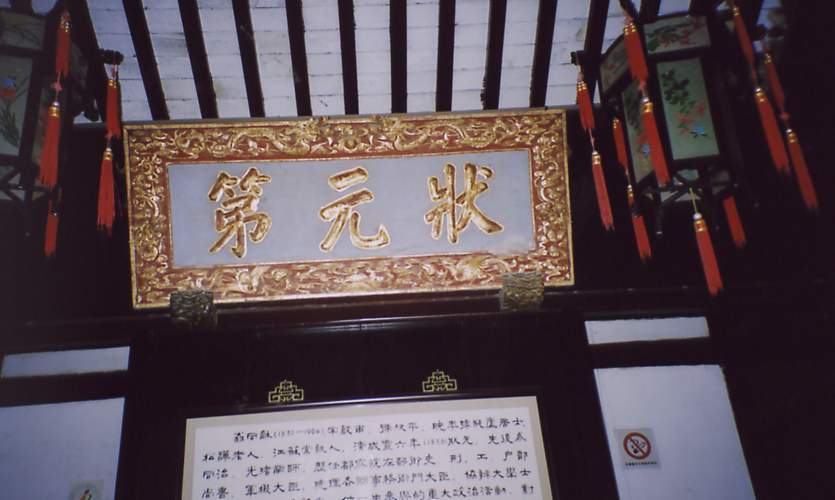 狀元第
翁同龢(1830—1904)字聲甫,號叔平,晚年號瓶廬居士、
松禪老人,江蘇常熟人,清咸豐六年(1856)狀元,先後為
同治、光緒兩帝師,歷任都察院左都御史,刑、工、戶部
尚書,軍機大臣,總理各國事務衙門大臣,協辦大學士
參與的重大政治活動,對